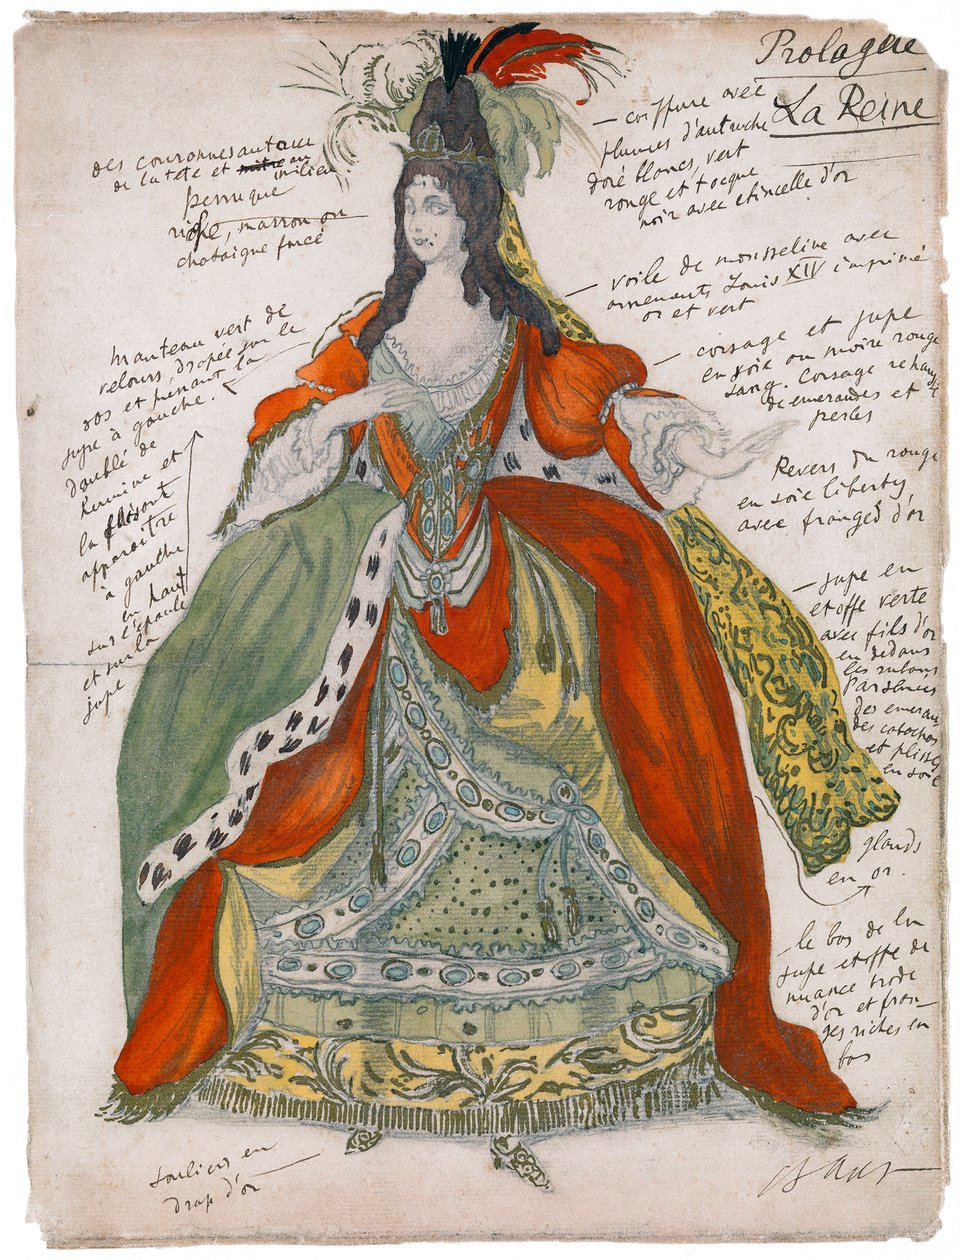 Prologue
La Reine
des couronnes autour
de la tête et au
milieu
perruque
riche, marron ou
chataigne foncé
— coiffure avec
plumes d'autruche
doré blancs, vert
rouge et tocque
noir avec etincelle d'or
voile de mousseline avec
ornements Louis XIV imprimé
or et vert
corsage et jupe
en soie ou moire rouge
sang. Corsage
d'emeraudes et
perles
Revers du rouge
en soie liberty
avec franges d'or
Manteau vert de
velours drapée sur le
dos et prenant la
jupe à gauche.
doublé de
Hermine et
la faisant
apparaitre
à gauche
en haut
sur l'épaule
et sur la
jupe
— jupe en
etoffe verte
avec fils d'or
en dedans
les rubans
des emerau-
des cabochos
et plissés
en soie
glands
en or.
le bas de la
jupe etoffe de
nuance
d'or et fran-
ges riches en
bas
souliers en
drap d'or
Bakst